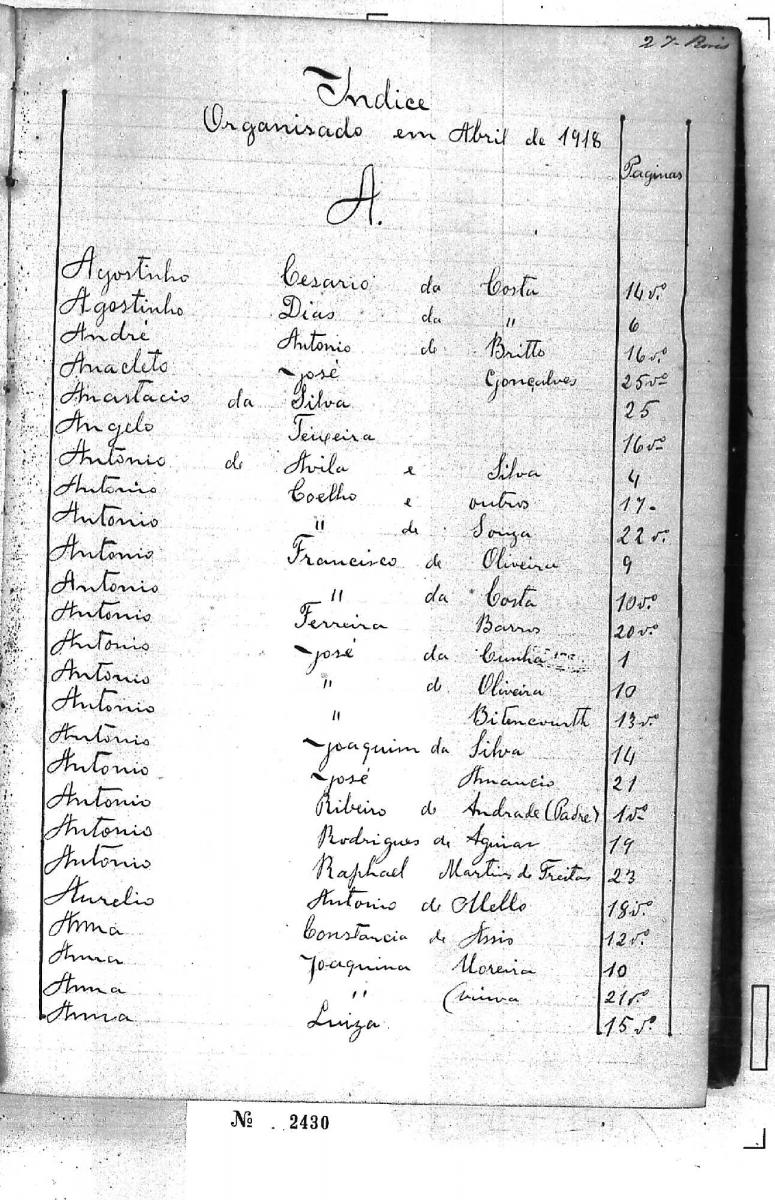 Indice
Organisado em Abril de 1918
Paginas
A.
Agostinho Cesario da Costa 14vº
Agostinho Dias da " 6
André Antonio de Britto 16vº
Anacleto José Gonçalves 25vº
Anastacio da Silva 25
Angelo Teixeira 16vº
Antonio de Avila e Silva 4
Antonio Coelho e outros 17-
Antonio " de Souza 22vº
Antonio Francisco de Oliveira 9
Antonio " da Costa 10vº
Antonio Ferreira Barros 20vº
Antonio José da Cunha 1
Antonio " de Oliveira 10
Antonio " Bitencourth 13vº
Antonio Joaquim da Silva 14
Antonio José Amancio 21
Antonio Ribeiro de Andrade (Padre) 1vº
Antonio Rodrigues de Aguiar 19
Antonio Raphael Martins de Freitas 23
Aurelio Antonio de Mello 18vº
Anna Constancia de Assis 12vº
Anna Joaquina Moreira 10
Anna " (viuva 21vº
Anna Luiza 15vº
Nº 2430